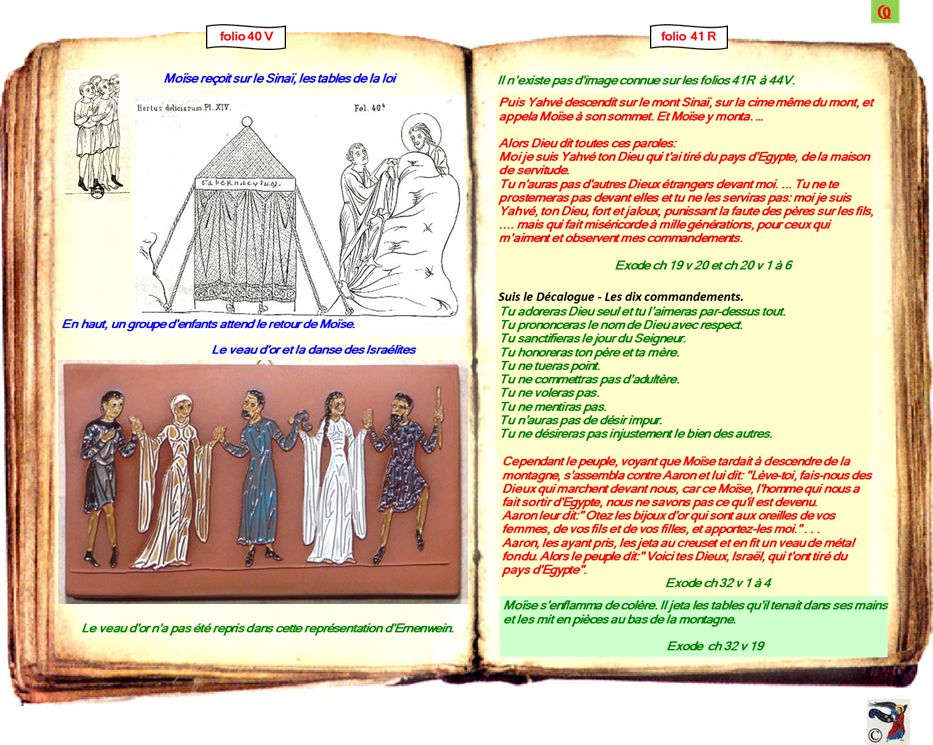 folio 40 V
Moïse reçoit sur le Sinaï, les tables de la loi
Hortus deliciarum. Pl. XIV.
Fol. 40ᵇ
En haut, un groupe d'enfants attend le retour de Moïse.
Le veau d'or et la danse des Israélites
Le veau d'or n'a pas été repris dans cette représentation d'Ernenwein.
folio 41 R
Il n'existe pas d'image connue sur les folios 41R à 44V.
Puis Yahvé descendit sur le mont Sinaï, sur la cime même du mont, et
appela Moïse à son sommet. Et Moïse y monta. ...
Alors Dieu dit toutes ces paroles:
Moi je suis Yahvé ton Dieu qui t'ai tiré du pays d'Egypte, de la maison
de servitude.
Tu n'auras pas d'autres Dieux étrangers devant moi. ... Tu ne te
prosterneras pas devant elles et tu ne les serviras pas: moi je suis
Yahvé, ton Dieu, fort et jaloux, punissant la faute des pères sur les fils,
.... mais qui fait miséricorde à mille générations, pour ceux qui
m'aiment et observent mes commandements.
Exode ch 19 v 20 et ch 20 v 1 à 6
Suis le Décalogue - Les dix commandements.
Tu adoreras Dieu seul et tu l'aimeras par-dessus tout.
Tu prononceras le nom de Dieu avec respect.
Tu sanctifieras le jour du Seigneur.
Tu honoreras ton père et ta mère.
Tu ne tueras point.
Tu ne commettras pas d'adultère.
Tu ne voleras pas.
Tu ne mentiras pas.
Tu n'auras pas de désir impur.
Tu ne désireras pas injustement le bien des autres.
Cependant le peuple, voyant que Moïse tardait à descendre de la
montagne, s'assembla contre Aaron et lui dit: "Lève-toi, fais-nous des
Dieux qui marchent devant nous, car ce Moïse, l'homme qui nous a
fait sortir d'Egypte, nous ne savons pas ce qu'il est devenu.
Aaron leur dit:" Otez les bijoux d'or qui sont aux oreilles de vos
femmes, de vos fils et de vos filles, et apportez-les moi." . . .
Aaron, les ayant pris, les jeta au creuset et en fit un veau de métal
fondu. Alors le peuple dit:" Voici tes Dieux, Israël, qui t'ont tiré du
pays d'Egypte".
Exode ch 32 v 1 à 4
Moïse s'enflamma de colère. Il jeta les tables qu'il tenait dans ses mains
et les mit en pièces au bas de la montagne.
Exode ch 32 v 19
©